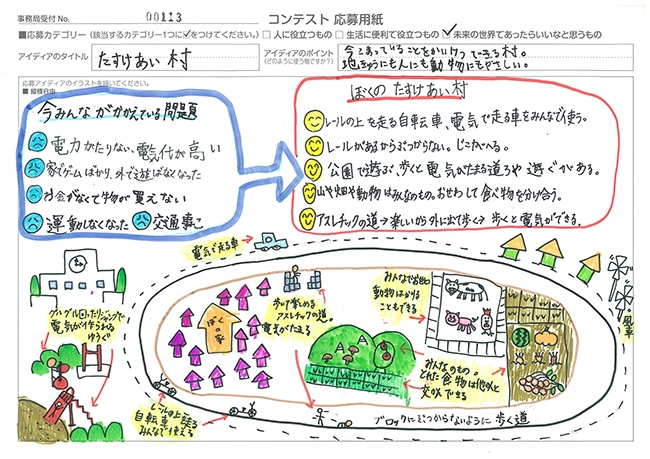 事務局受付No. 00113
コンテスト 応募用紙
■応募カテゴリー(該当するカテゴリー1つに✓をつけてください。) □人に役立つもの □生活に便利で役立つもの ✓未来の世界であったらいいなと思うもの
アイディアのタイトル たすけあい村
アイディアのポイント
(どのように使う物ですか?)
今こまっていることをかいけつできる村。
地きゅうにも人にも動物にもやさしい。
応募アイディアのイラストを描いてください。
■縦横自由
今みんながかかえている問題
電力がたりない、電気代が高い
家でゲームばかり、外で遊ばなくなった
お金がなくて物が買えない
運動しなくなった
交通事こ
ぼくの たすけあい村
レールの上を走る自転車、電気で走る車をみんなで使う。
レールがあるからぶつからない。じこがへる。
公園で遊ぶ、歩くと電気がたまる道ろや遊ぐがある。
山や畑や動物はみんなのもの。おせわして食べ物を分け合う。
アスレチックの道→楽しいから外に出て歩く→歩くと電気ができる。
電気で走る車
グルグル回ったりジャンプで
電気が作りだせる
ゆうぐ
ぼく
の
家
歩いて楽しめる
アスレチックの道
電気がたまる
みんなでお世話
動物はかりる
こともできる
みんなのもの
とれた食物は他の人と
交かんできる
風車
レールの上
自転車 走る
みんなで使える
ブロックにぶつからないように 歩く道